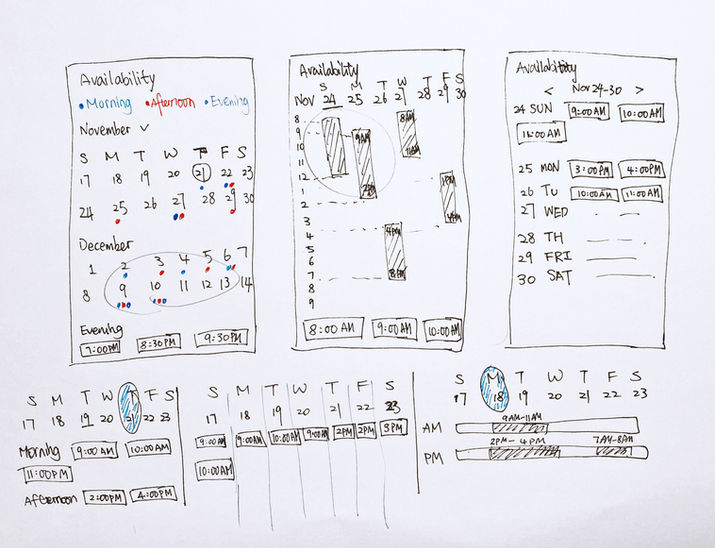 Availability
Morning Afternoon Evening
November
S M T W T F S
17 18 19 20 21 22 23
24 25 26 27 28 29 30
December
1 2 3 4 5 6 7
8 9 10 11 12 13 14
Evening
7:00PM 8:30PM 9:30PM
Availability
S M T W T F S
Nov 24 25 26 27 28 29 30
8
9
10
11
12
1
2
3
4
5
6
7
8
9
9AM
2PM
8AM
11AM
1PM
4PM
8PM
8:00AM 9:00AM 10:00AM
Availability
< Nov 24-30 >
24 SUN 9:00AM 10:00AM
11:00AM
25 MON 3:00PM 4:00PM
26 TU 10:00AM 11:00AM
27 WED
28 TH
29 FRI
30 SAT
S M T W T F S
17 18 19 20 21 22 23
Morning 9:00AM 10:00AM
11:00PM
Afternoon 2:00PM 4:00PM
S M T W T F S
17 18 19 20 21 22 23
9:00AM 9:00AM 10:00AM 9:00AM 2PM 2PM 3PM
10:00AM
S M T W T F S
17 18 19 20 21 22 23
9AM-11AM
AM
2PM-4PM 7AM-8AM
PM